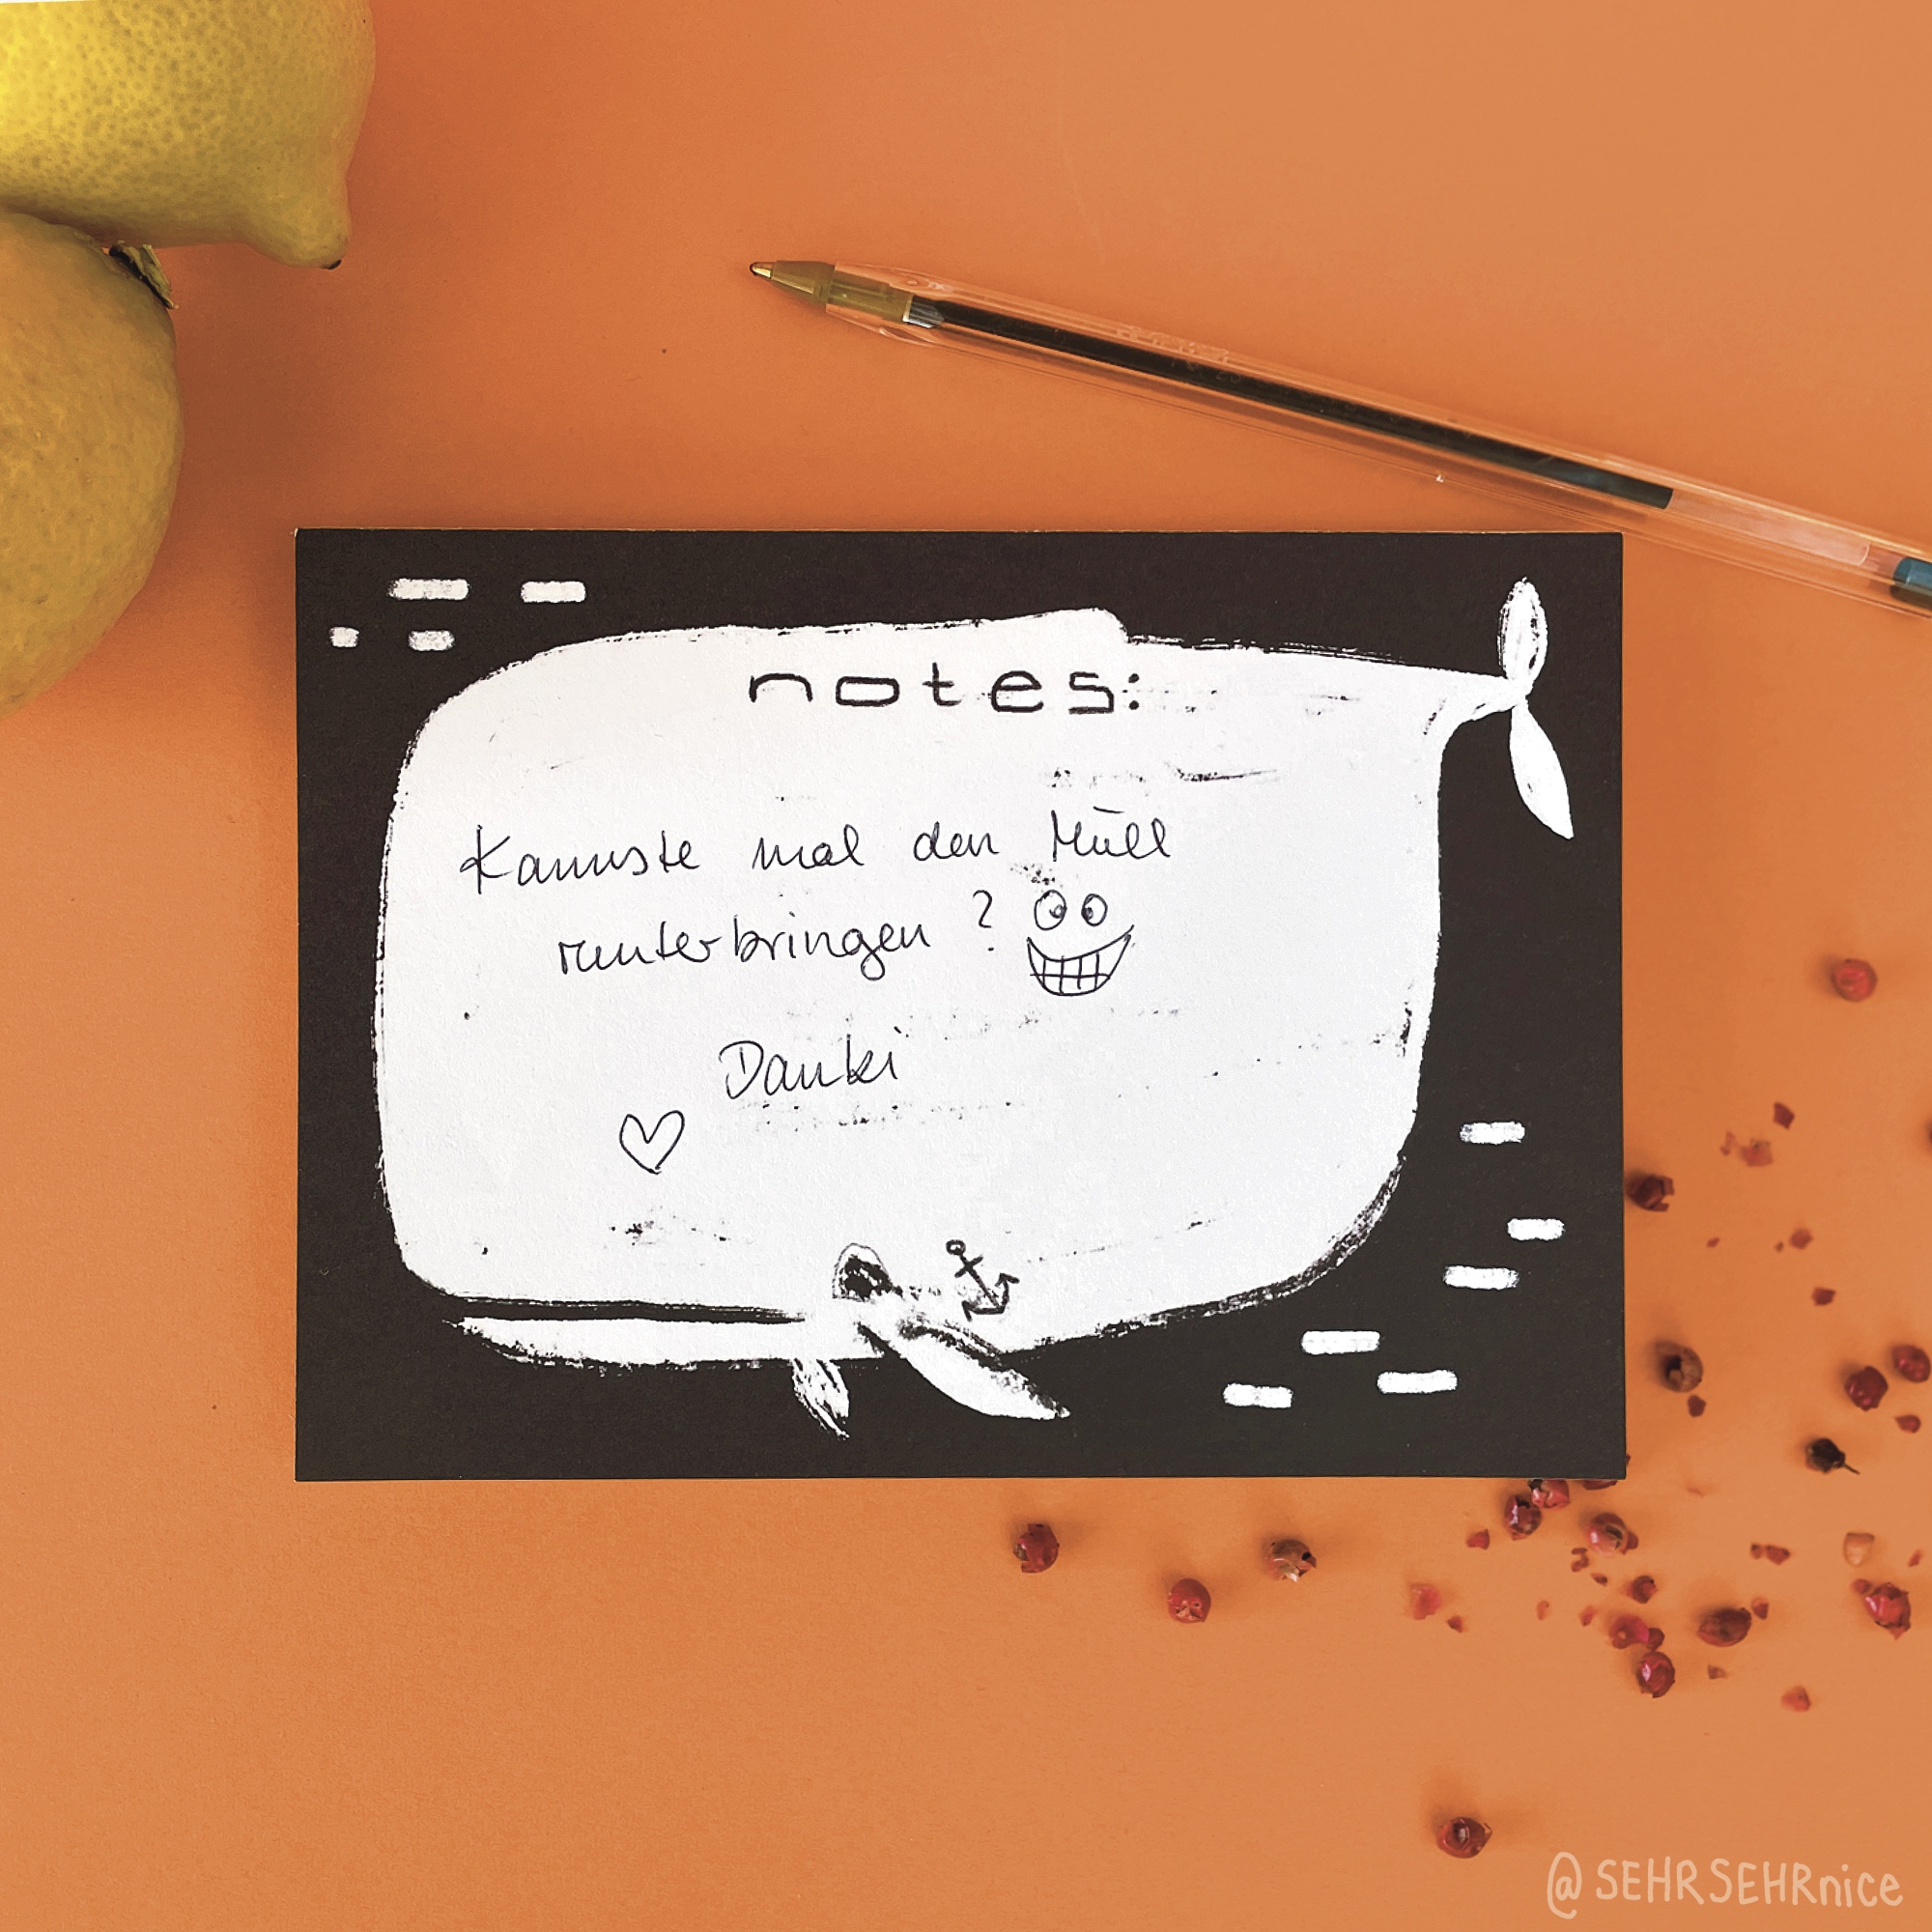 notes:
Kannste mal den Müll
runterbringen?
Danki
@SEHRSEHRnice